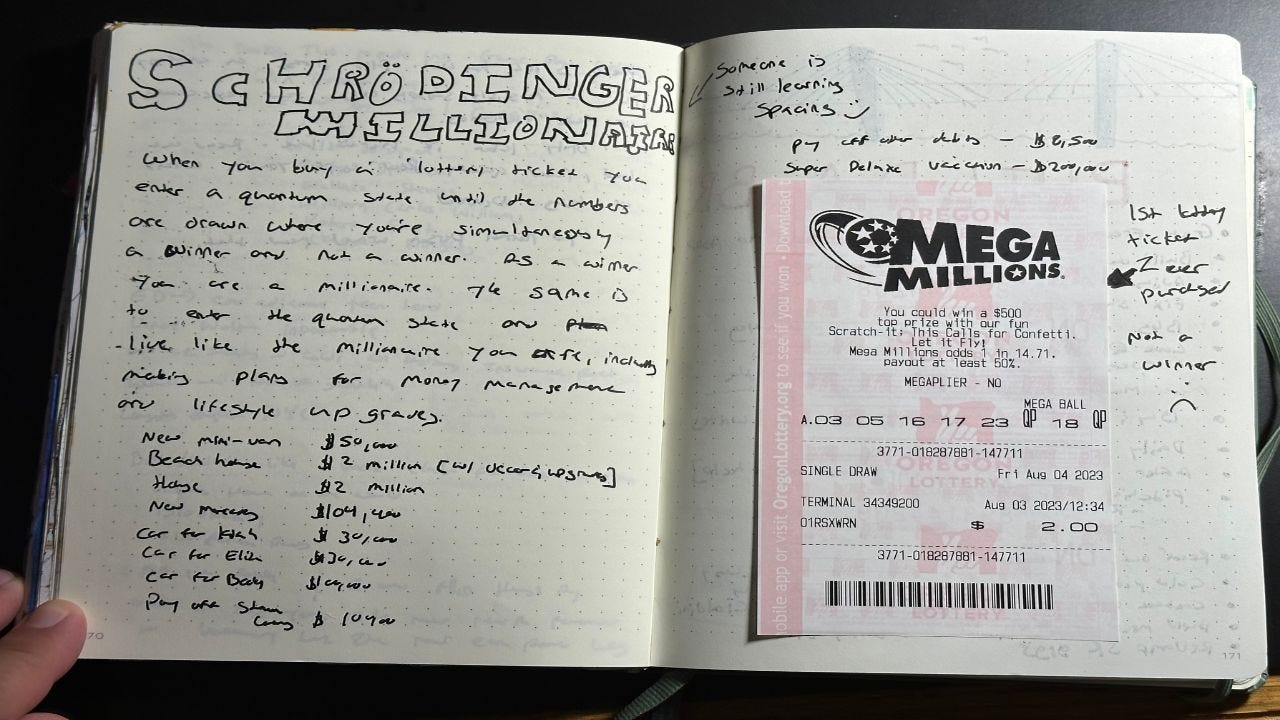 SCHRÖDINGER
MILLIONAIRE
When you buy a lottery ticket you
enter a quantum state until the numbers
are drawn where you're simultaneously
a winner and not a winner. As a winner
you are a millionaire. The same is
to enter the quantum state and
live like the millionaire you are, including
making plans for money management
and lifestyle upgrades.
New mini-van $50,000
Beach house $2 million [w/ decor & upgrades]
House $2 million
New Mercury $104,400
Car for $30,000
Car for $30,000
Car for
Pay off
$
Someone is
still learning
spacing
pay off other debts - $8,500
Super Deluxe vacation - $200,000
OREGON
MEGA
MILLIONS®
You could win a $500
top prize with our fun
Scratch-it: This Calls for Confetti.
Let it Fly!
Mega Millions odds 1 in 14.71.
payout at least 50%.
MEGAPLIER - NO
MEGA BALL
A.03 05 16 17 23 QP 18 QP
3771-018287881-147711
SINGLE DRAW Fri Aug 04 2023
TERMINAL 34349200 Aug 03 2023/12:34
01RSXWRN $ 2.00
3771-018287881-147711
OREGON
LOTTERY
LOTTERY
obile app or visit OregonLottery.org to see if you won • Download t
1st lottery
ticket
I ever
purchased
Not a
winner
:(
70
171